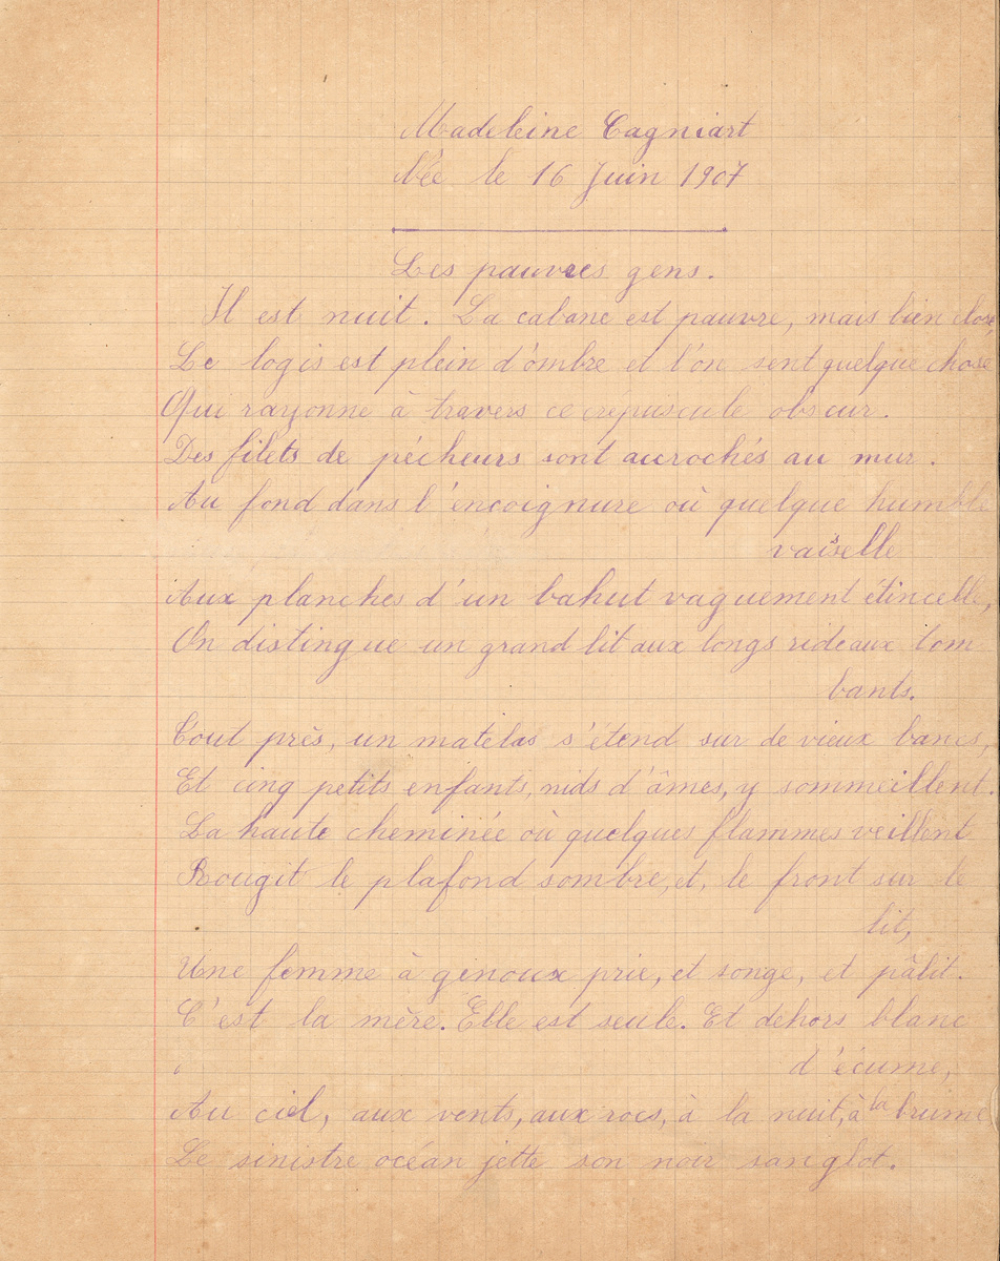 Madeleine Cagniart
Née le 16 Juin 1907
Les pauvres gens.
Il est nuit. La cabane est pauvre, mais bien close,
Le logis est plein d'ombre et l'on sent quelque chose
Qui rayonne à travers ce crépuscule obscur.
Des filets de pécheurs sont accrochés au mur.
Au fond dans l'encoignure où quelque humble
vaisselle
Aux planches d'un bahut vaguement étincelle,
On distingue un grand lit aux longs rideaux tom
bants.
Tout près, un matelas s'étend sur de vieux bancs,
Et cinq petits enfants, nids d'âmes, y sommeillent.
La haute cheminée où quelques flammes veillent
Rougit le plafond sombre, et, le front sur le
lit,
Une femme à genoux prie, et songe, et pâlit.
C'est la mère. Elle est seule. Et dehors blanc
d'écume,
Au ciel, aux vents, aux rocs, à la nuit, à la brume
Le sinistre océan jette son noir sanglot.